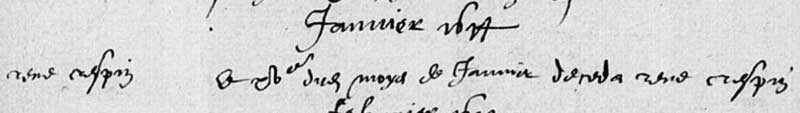 Janvier 16
rene crespin
le dud moys de Janvier deceda rene crespin